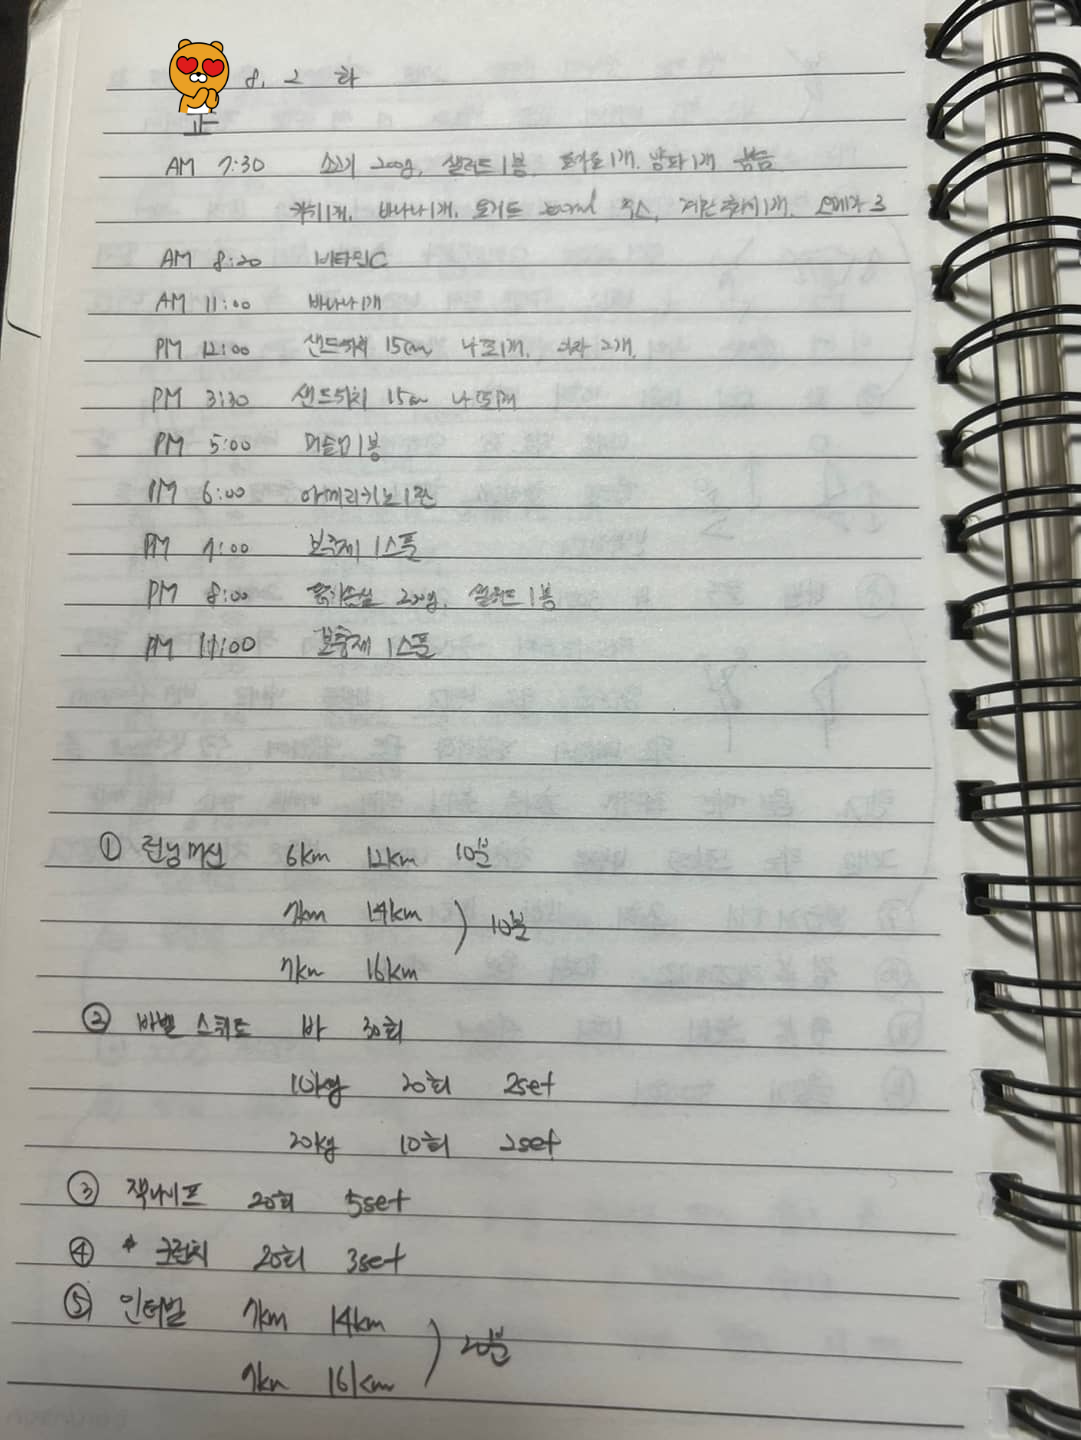 8. 2 화
正
AM 7:30 소고기 200g, 샐러드1봉, 토마토1개, 양파1개 볶음
키위1개, 바나나1개, 요거트 200ml 주스, 계란후라이1개, 오메가3
AM 8:20 비타민C
AM 11:00 바나나1개
PM 12:00 샌드위치 15cm 낱또1개, 과자 2개,
PM 3:30 샌드위치 15cm
PM 5:00 머슬미1봉
PM 6:00 아메리카노1잔
PM 7:00 보충제 1스푼
PM 8:00 닭가슴살 200g, 샐러드1봉
PM 11:00 보충제 1스푼
① 런닝머신 6km 12km 10분
7km 14km ) 10분
7km 16km
② 바벨 스쿼트 바 30회
10kg 20회 2set
20kg 10회 2set
③ 잭나이프 20회 5set
④ * 크런치 20회 3set
⑤ 인터벌 7km 14km ) 20분
7km 16km